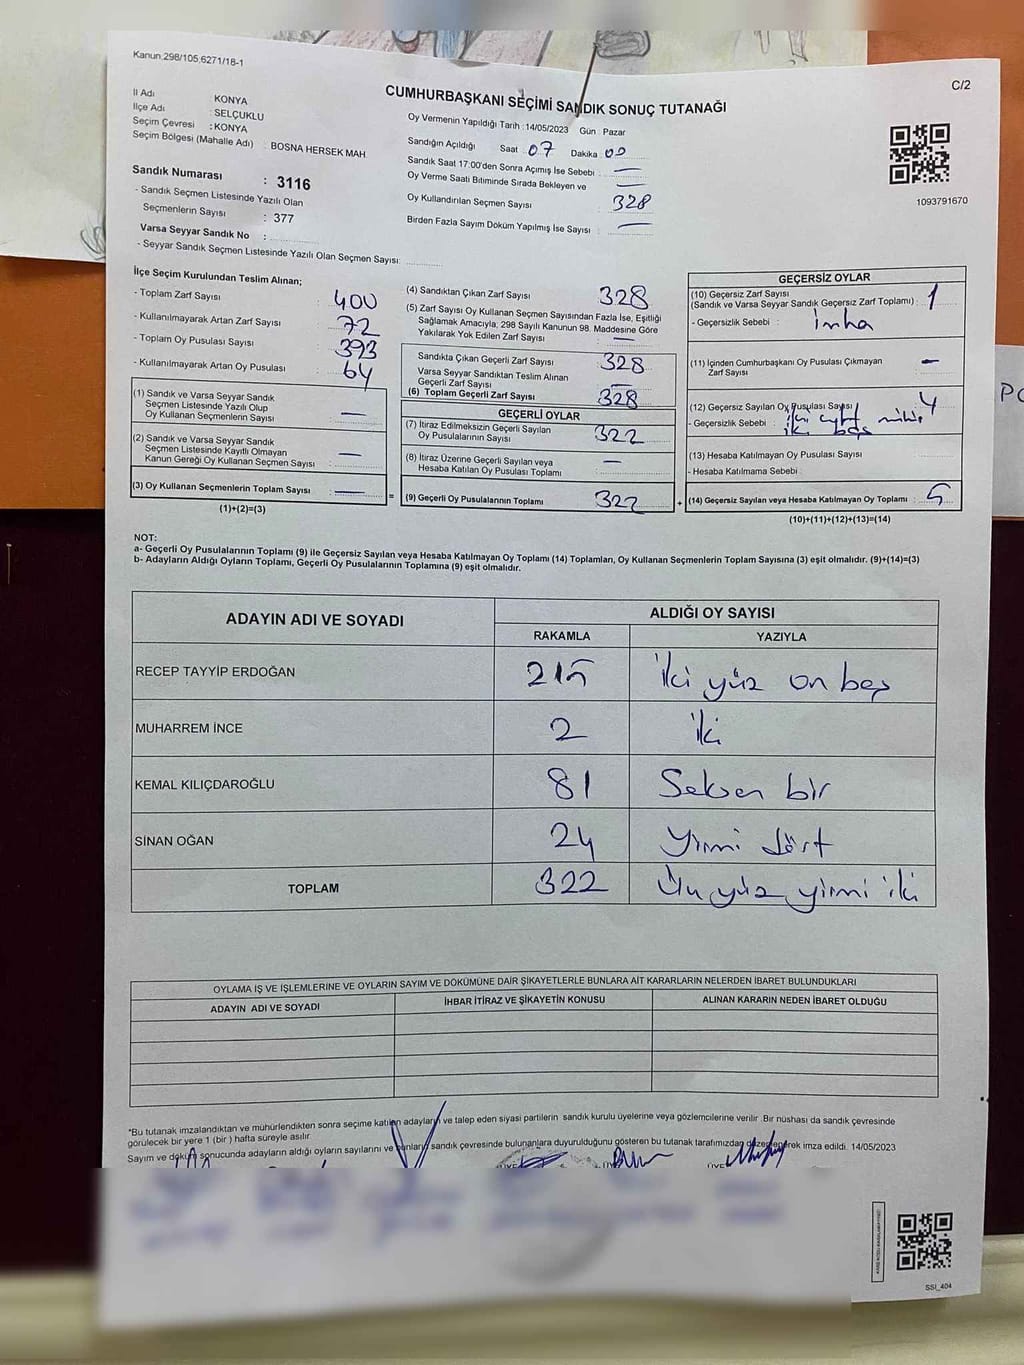 Kanun 298/105,6271/18-1
C/2
CUMHURBAŞKANI SEÇİMİ SANDIK SONUÇ TUTANAĞI
İl Adı : KONYA
İlçe Adı : SELÇUKLU
Seçim Çevresi : KONYA
Seçim Bölgesi (Mahalle Adı) : BOSNA HERSEK MAH
Sandık Numarası : 3116
- Sandık Seçmen Listesinde Yazılı Olan
Seçmenlerin Sayısı : 377
Varsa Seyyar Sandık No :
- Seyyar Sandık Seçmen Listesinde Yazılı Olan Seçmen Sayısı:
Oy Vermenin Yapıldığı Tarih :14/05/2023 Gün : Pazar
Sandığın Açıldığı Saat 07 Dakika 00
Sandık Saat 17:00'den Sonra Açımış İse Sebebi —
Oy Verme Saati Bitiminde Sırada Bekleyen ve —
Oy Kullandırılan Seçmen Sayısı 328
Birden Fazla Sayım Döküm Yapılmış İse Sayısı : —
1093791670
İlçe Seçim Kurulundan Teslim Alınan;
- Toplam Zarf Sayısı : 400
- Kullanılmayarak Artan Zarf Sayısı : 72
- Toplam Oy Pusulası Sayısı : 393
- Kullanılmayarak Artan Oy Pusulası : 64
(1) Sandık ve Varsa Seyyar Sandık
Seçmen Listesinde Yazılı Olup
Oy Kullanan Seçmenlerin Sayısı : —
(2) Sandık ve Varsa Seyyar Sandık
Seçmen Listesinde Kayıtlı Olmayan
Kanun Gereği Oy Kullanan Seçmen Sayısı : —
(3) Oy Kullanan Seçmenlerin Toplam Sayısı : —
(1)+(2)=(3)
(4) Sandıktan Çıkan Zarf Sayısı : 328
(5) Zarf Sayısı Oy Kullanan Seçmen Sayısından Fazla İse, Eşitliği
Sağlamak Amacıyla; 298 Sayılı Kanunun 98. Maddesine Göre
Yakılarak Yok Edilen Zarf Sayısı : —
Sandıkta Çıkan Geçerli Zarf Sayısı : 328
Varsa Seyyar Sandıktan Teslim Alınan
Geçerli Zarf Sayısı : —
(6) Toplam Geçerli Zarf Sayısı : 328
GEÇERLİ OYLAR
(7) İtiraz Edilmeksizin Geçerli Sayılan
Oy Pusulalarının Sayısı : 322
(8) İtiraz Üzerine Geçerli Sayılan veya
Hesaba Katılan Oy Pusulası Toplamı : —
= (9) Geçerli Oy Pusulalarının Toplamı : 322
GEÇERSİZ OYLAR
(10) Geçersiz Zarf Sayısı
(Sandık ve Varsa Seyyar Sandık Geçersiz Zarf Toplamı) : 1
- Geçersizlik Sebebi : imha
(11) İçinden Cumhurbaşkanı Oy Pusulası Çıkmayan
Zarf Sayısı : —
(12) Geçersiz Sayılan Oy Pusulası Sayısı : 4
- Geçersizlik Sebebi : iki
iki boş
(13) Hesaba Katılmayan Oy Pusulası Sayısı :
- Hesaba Katılmama Sebebi :
+ (14) Geçersiz Sayılan veya Hesaba Katılmayan Oy Toplamı : 5
(10)+(11)+(12)+(13)=(14)
NOT:
a- Geçerli Oy Pusulalarının Toplamı (9) ile Geçersiz Sayılan veya Hesaba Katılmayan Oy Toplamı (14) Toplamları, Oy Kullanan Seçmenlerin Toplam Sayısına (3) eşit olmalıdır. (9)+(14)=(3)
b- Adayların Aldığı Oyların Toplamı, Geçerli Oy Pusulalarının Toplamına (9) eşit olmalıdır.
ADAYIN ADI VE SOYADI ALDIĞI OY SAYISI
RAKAMLA YAZIYLA
RECEP TAYYİP ERDOĞAN 215 iki yüz on beş
MUHARREM İNCE 2 iki
KEMAL KILIÇDAROĞLU 81 Seksen bir
SİNAN OĞAN 24 yirmi dört
TOPLAM 322 Üç yüz yirmi iki
OYLAMA İŞ VE İŞLEMLERİNE VE OYLARIN SAYIM VE DÖKÜMÜNE DAİR ŞİKAYETLERLE BUNLARA AİT KARARLARIN NELERDEN İBARET BULUNDUKLARI
ADAYIN ADI VE SOYADI İHBAR İTİRAZ VE ŞİKAYETİN KONUSU ALINAN KARARIN NEDEN İBARET OLDUĞU
*Bu tutanak imzalandıktan ve mühürlendikten sonra seçime katılan adayların ve talep eden siyasi partilerin sandık kurulu üyelerine veya gözlemcilerine verilir. Bir nüshası da sandık çevresinde
görülecek bir yere 1 (bir) hafta süreyle asılır.
Sayım ve döküm sonucunda adayların aldığı oyların sayılarını ve bunların sandık çevresinde bulunanlara duyurulduğunu gösteren bu tutanak tarafımızdan düzenlenerek imza edildi. 14/05/2023
ÜYE
SSI_404